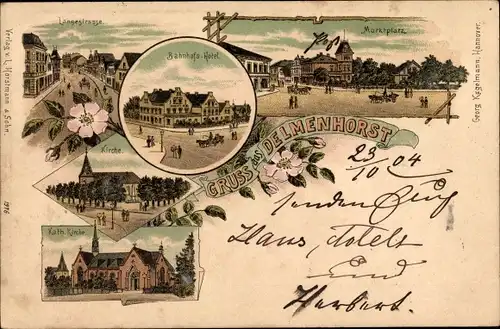 Langestrasse.
Bahnhofs-Hotel.
Marktplatz.
Verlag v. L. Horstmann & Sohn.
Georg Kugelmann, Hannover.
GRUSS AUS DELMENHORST
Kirche.
Kath. Kirche
23/10 04
senden Euch
Hans,
und
Herbert.